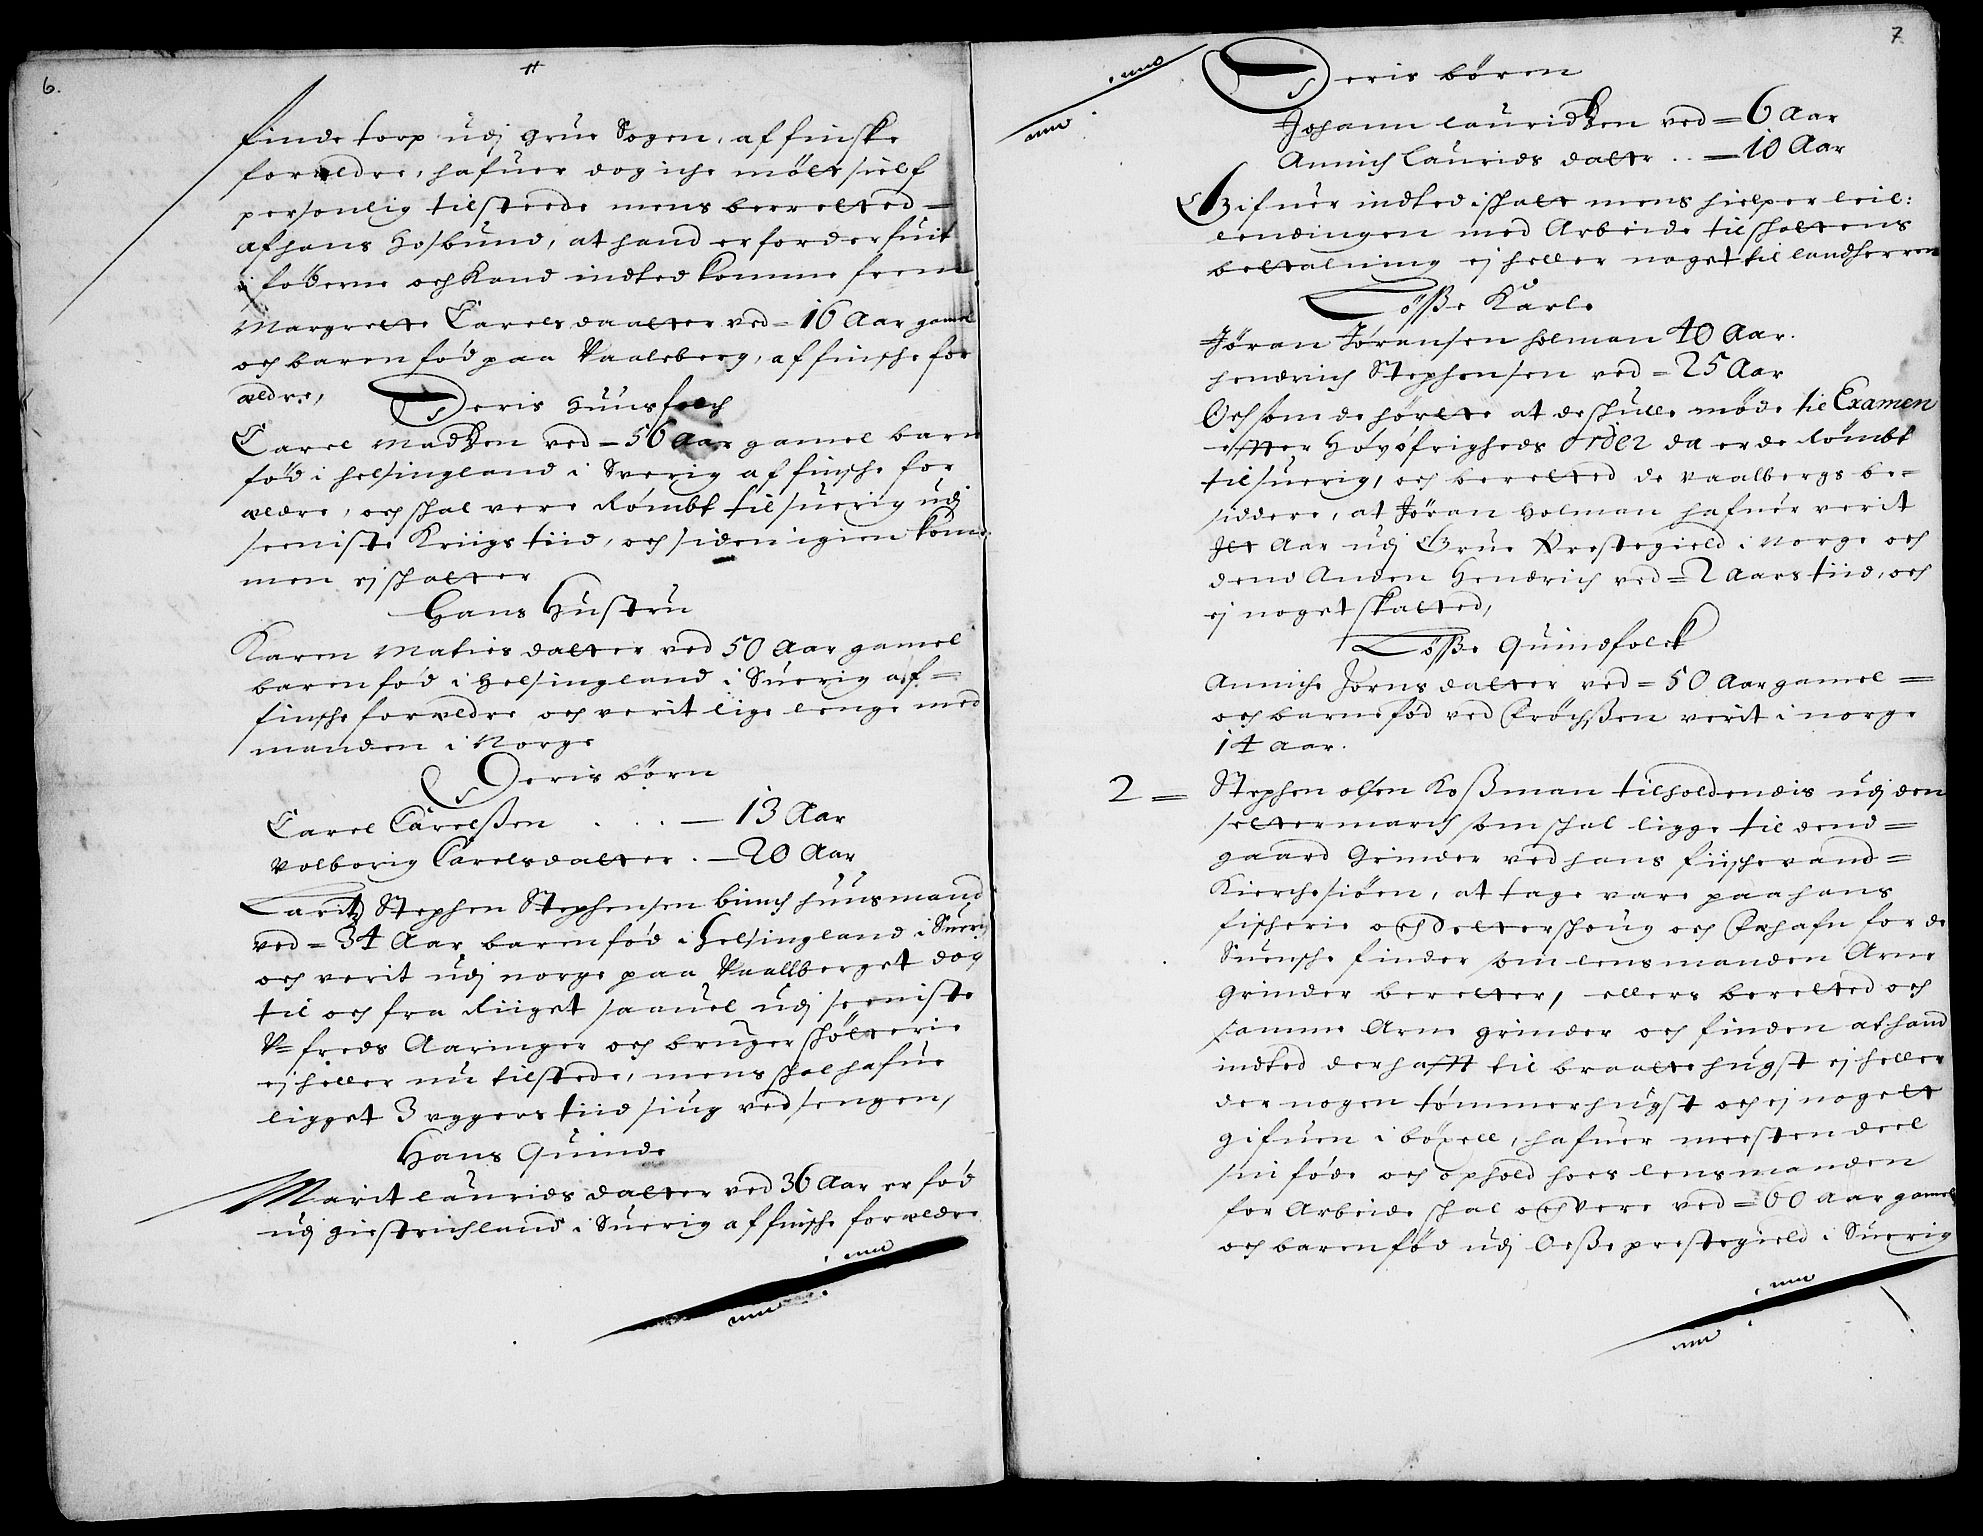 6.
finde torp udj Grue Sogen, af finske
forældre, hafuer dog iche möett sielf
personlig tilsteede mens berretted
af hans Hosbund, at hand er forderfuit
i föderne och kand indted komme frem
Margrette Carelsdaatter ved = 16 Aar gamel
och baren föd paa Vaaleberg, af finsche for
ældre,
Deris Huusfolch
Carel Madtzen ved = 56 Aar gamel barn
föd i Helsingland i Sverig af finsche for
ældre, och schal vere Römbt til suerig udj
seeniste Kriigs tiid, och siden igien kom¬
men ej schatter
Hans Hustru
Karen Maties datter ved 50 Aar gamel
baren föd i Helsingland i Suerig af =
finsche forældre och verit lige lenge med
manden i Norge
Deris börn
Carel Carelsßen . . . — 13 Aar
Volborig Carelsdatter . — 20 Aar
Laritz Stephen Stephensen huusmand
ved = 34 Aar baren föd i Helsingland i Suerig
och verit udj norge paa Vaallberget dog
til och fra Riiget saauel udj seeniste
V= freds Aaringer och bruger schötterie
ej heller nu tilstede, mens schal hafue
ligget 3 vggers tiid siug ved sengen,
Hans Quinde
Marit laurids datter ved 36 Aar er föd
udj giestrichland i Suerig af finsche forældre
7
Deris bören
Johann lauridtzen ved = 6 Aar
Annich Laurids datter . . — 10 Aar
Gifuer indted i schatt mens hielper leil:
lendingen med Arbeide til schattens
bettalning ej heller noget til landherren
Lösße Karle
Jöran Jöransen holman 40 Aar.
hendrich Stephensen ved = 25 Aar
Och som de hörtte at de schulle möde til Examen
effter Höyöfrigheds order da er de Römbt
til suerig, och beretted de vaalbergs be=
siddere, at Jöran Holman hafuer verit
Aar udj Grue Prestegield i Norge och
dend Anden Hendrich ved = 2 Aars tiid, och
ej noget skatted,
Lösße Quindfolck
Anniche Jörnsdatter ved = 50 Aar gamel =
och barne föd ved verit i norge
14 Aar.
2 = Stephen olsen Kosßman tilholdendis udj den
settermarch som schal ligge til dend =
gaard Grinder ved hans fiischevand =
Kierchesiöen, at tage vare paa hans
fischerie och setterschoug och for de
Suensche finder som lensmanden Arne
Grinder beretter, ellers beretted och
samme Arne grinder och finden at hand
indted der hafft til braatte hugst ej heller
der nogen tömmerhugst och ej nogett
gifuen i böxell, hafuer meesten deel
sin föde och ophold hoes lensmanden
for Arbeide schal och vere ved = 60 Aar gamel
och baren föd udj prestegield i Suerig